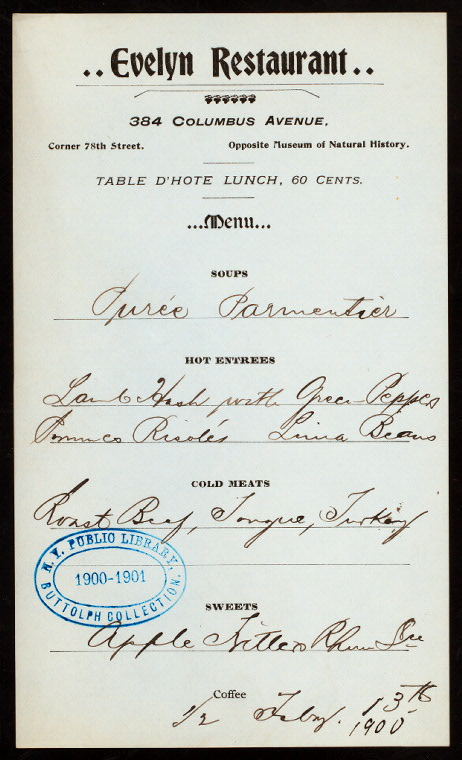 ..Evelyn Restaurant..
384 COLUMBUS AVENUE,
Corner 78th Street. Opposite Museum of Natural History.
TABLE D'HOTE LUNCH, 60 CENTS.
...Menu...
SOUPS
Purée Parmentier
HOT ENTREES
Lamb Hash with Green Peppers
Pommes Risolés Lima Beans
COLD MEATS
Roast Beef, Tongue, Turkey
N.Y. PUBLIC LIBRARY,
1900-1901
BUTTOLPH COLLECTION.
SWEETS
Apple Fritters Rhum Sce
Coffee
1/2 Feby. 13th
1900